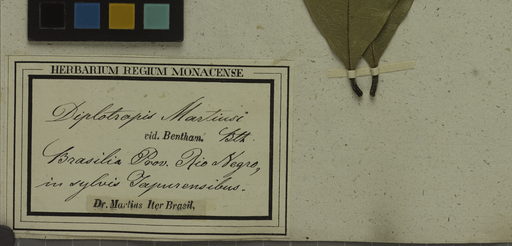 HERBARIUM REGIUM MONACENSE
Diplotropis Martiusi
vid. Bentham. Bth.
Brasilia Prov. Rio Negro,
in sylvis Japurensibus.
Dr. Martius Iter Brasil.